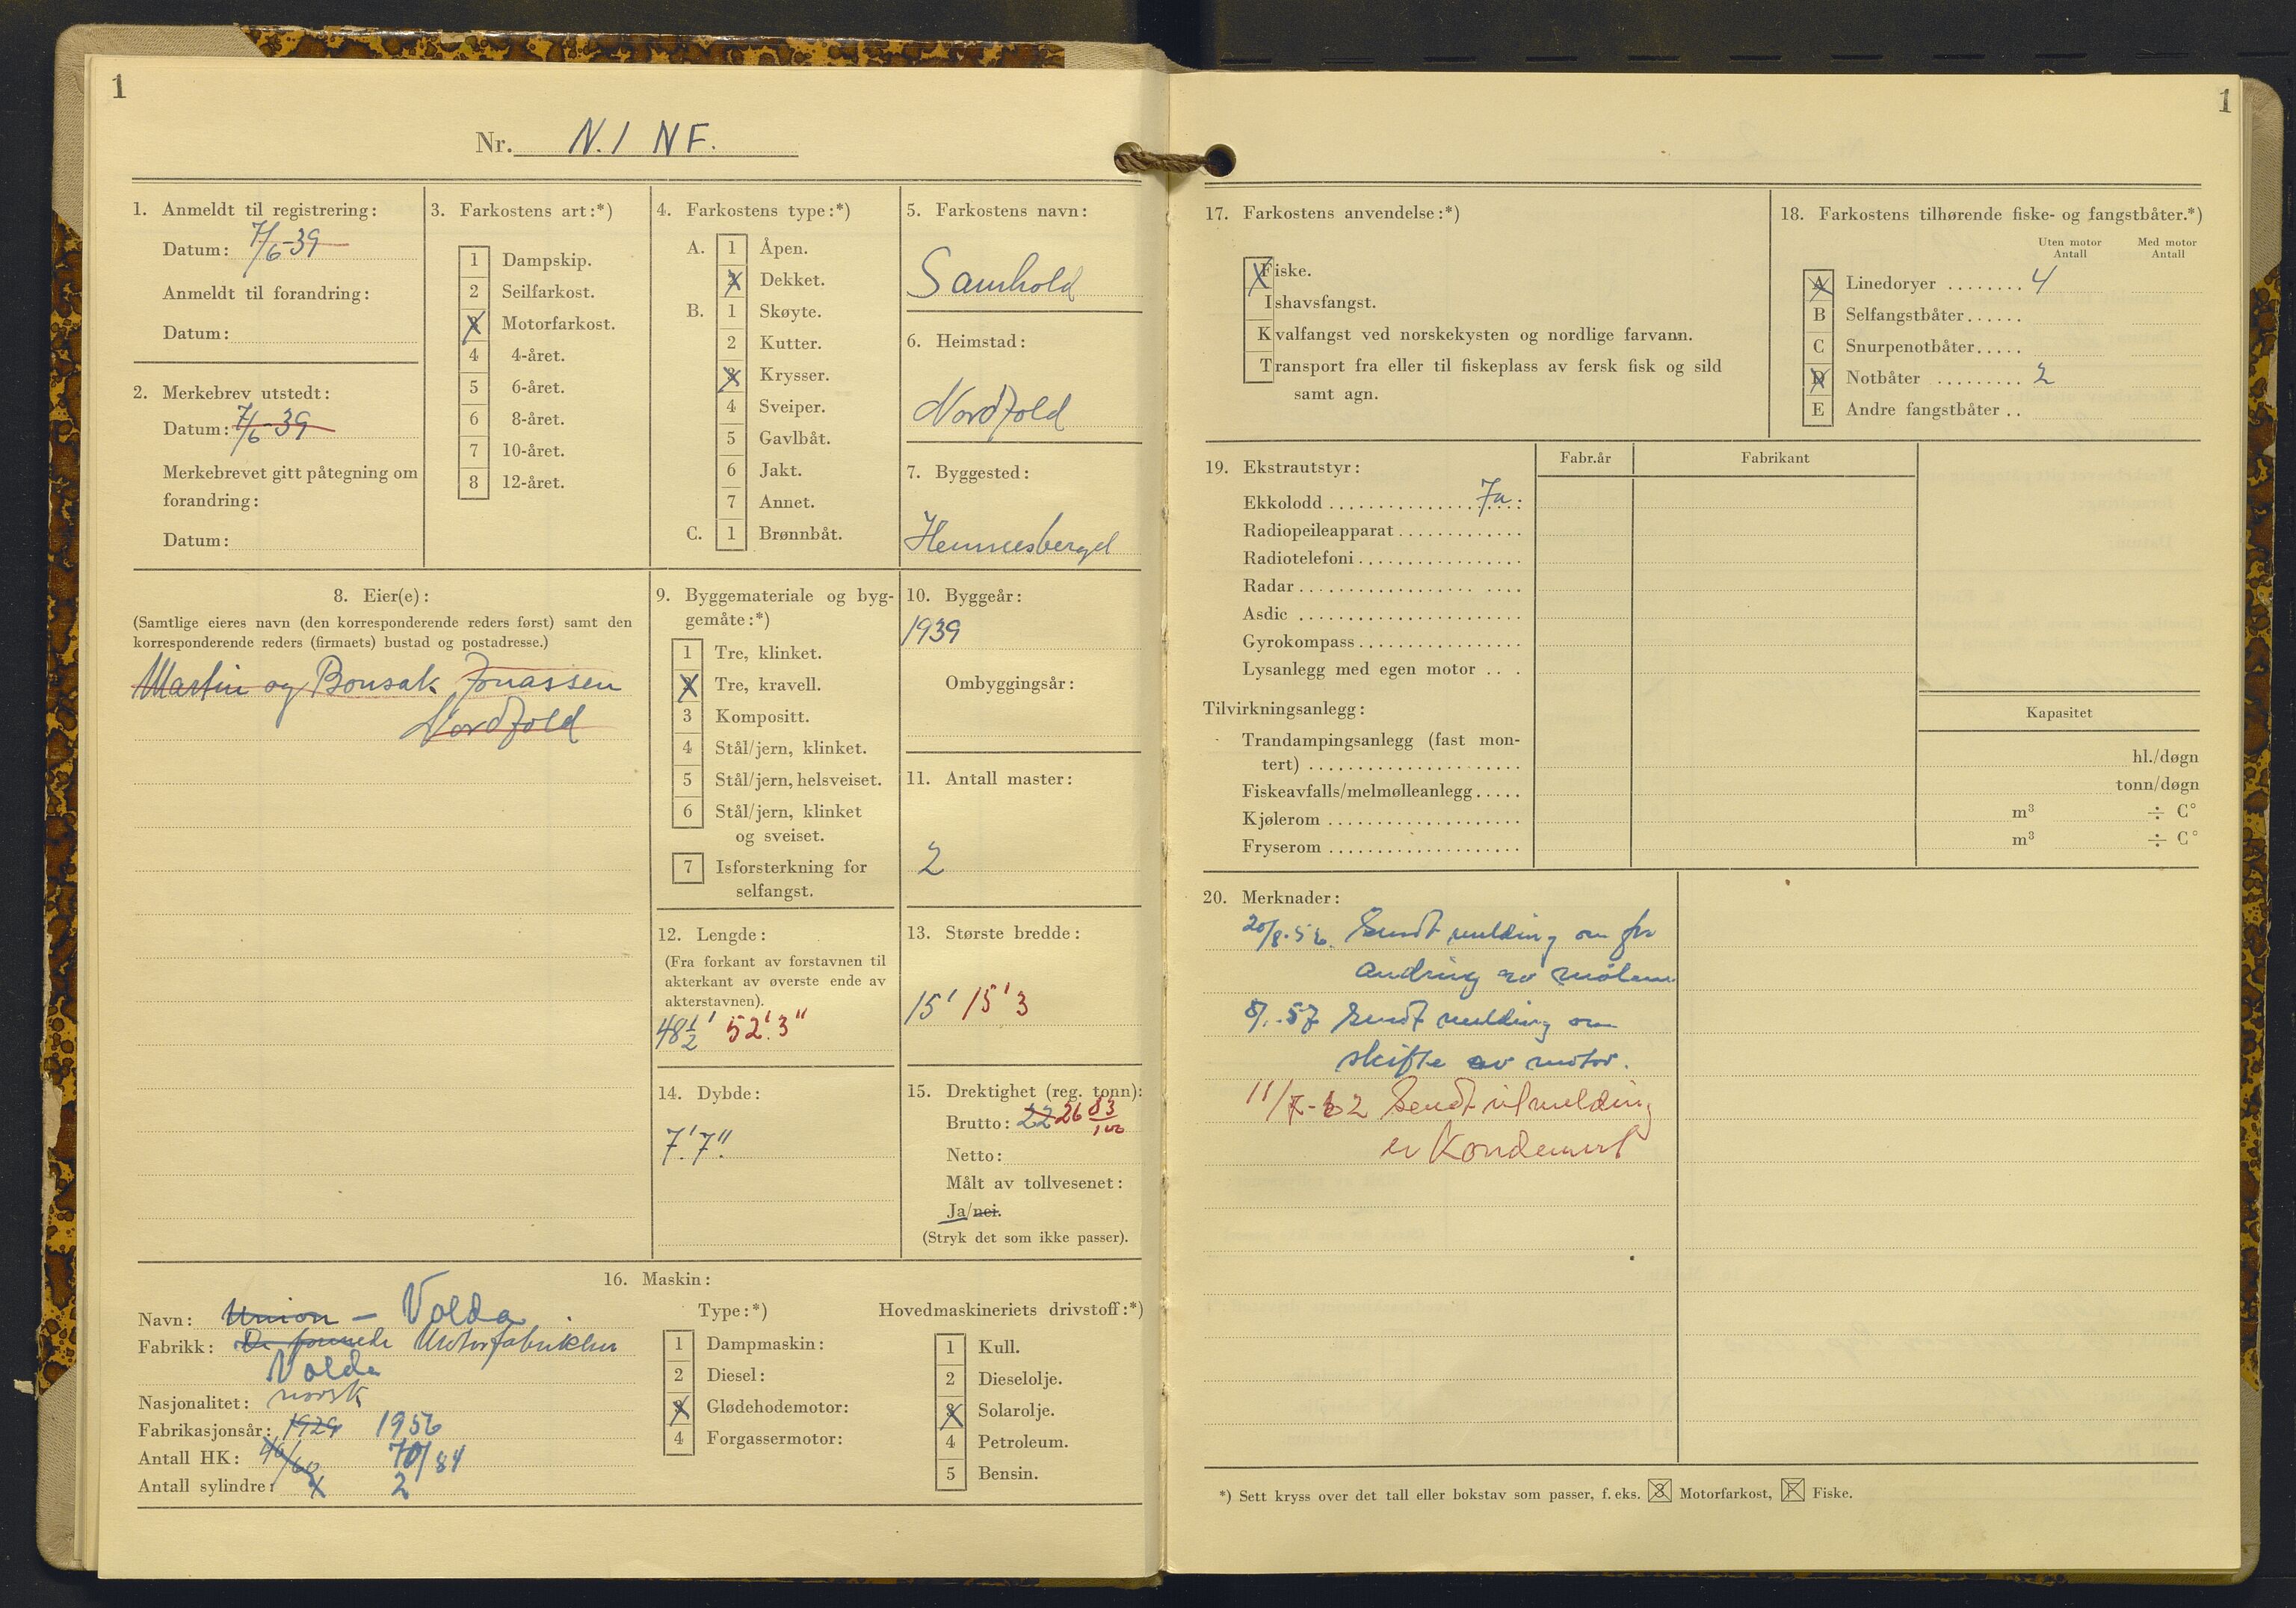 1
Nr. N. 1 NF.
1. Anmeldt til registrering:
Datum: 7/6-39
Anmeldt til forandring:
Datum:
2. Merkebrev utstedt:
Datum: 7/6-39
Merkebrevet gitt påtegning om
forandring:
Datum:
3. Farkostens art:*)
1 Dampskip.
2 Seilfarkost.
3 Motorfarkost.
4 4-året.
5 6-året.
6 8-året.
7 10-året.
8 12-året.
4. Farkostens type:*)
A. 1 Åpen.
2 Dekket.
B. 1 Skøyte.
2 Kutter.
3 Krysser.
4 Sveiper.
5 Gavlbåt.
6 Jakt.
7 Annet.
C. 1 Brønnbåt.
5. Farkostens navn:
Samhold
6. Heimstad:
Nordfold
7. Byggested:
8. Eier(e):
(Samtlige eieres navn (den korresponderende reders først) samt den
korresponderende reders (firmaets) bustad og postadresse.)
Martin og Bonsak Jonassen
Nordfold
9. Byggemateriale og byg-
gemåte:*)
1 Tre, klinket.
2 Tre, kravell.
3 Kompositt.
4 Stål/jern, klinket.
5 Stål/jern, helsveiset.
6 Stål/jern, klinket
og sveiset.
7 Isforsterkning for
selfangst.
10. Byggeår:
1939
Ombyggingsår:
11. Antall master:
2
12. Lengde:
(Fra forkant av forstavnen til
akterkant av øverste ende av
akterstavnen).
48 1/2' 52'.3"
13. Største bredde:
15' 15'3
14. Dybde:
7'.7".
15. Drektighet (reg. tonn):
Brutto: 22 26 83/100
Netto:
Målt av tollvesenet:
Ja/nei.
(Stryk det som ikke passer).
16. Maskin:
Navn: Union - Volda
Fabrikk: De forenede Motorfabrikker
Volda
Nasjonalitet: norsk
Fabrikasjonsår: 1929 1956
Antall HK: 40/60 70/84
Antall sylindre: 2
Type:*)
1 Dampmaskin:
2 Diesel:
3 Glødehodemotor:
4 Forgassermotor:
Hovedmaskineriets drivstoff:*)
1 Kull.
2 Dieselolje.
3 Solarolje.
4 Petroleum.
5 Bensin.
1
17. Farkostens anvendelse:*)
Fiske.
Ishavsfangst.
Kvalfangst ved norskekysten og nordlige farvann.
Transport fra eller til fiskeplass av fersk fisk og sild
samt agn.
18. Farkostens tilhørende fiske- og fangstbåter.*)
Uten motor Med motor
Antall Antall
A Linedoryer ........ 4
B Selfangstbåter......
C Snurpenotbåter.....
D Notbåter ......... 2
E Andre fangstbåter ..
19. Ekstrautstyr:
Fabr.år Fabrikant
Ekkolodd ............... Ja:
Radiopeileapparat.............
Radiotelefoni.................
Radar.................. ....
Asdic .......................
Gyrokompass.................
Lysanlegg med egen motor .. .
Tilvirkningsanlegg:
Kapasitet
Trandampingsanlegg (fast mon-
tert) ...................... hl./døgn
Fiskeavfalls/melmølleanlegg..... tonn/døgn
Kjølerom .................... m³ ÷ C°
Fryserom .................... m³ ÷ C°
20. Merknader:
20/8.56. Sendt melding om for
andring av målene
8/1.57 Sendt melding om
skifte av motor.
11/7-62 Sendt utmelding
er Kondemert
*) Sett kryss over det tall eller bokstav som passer, f. eks. 3 Motorfarkost, F Fiske.